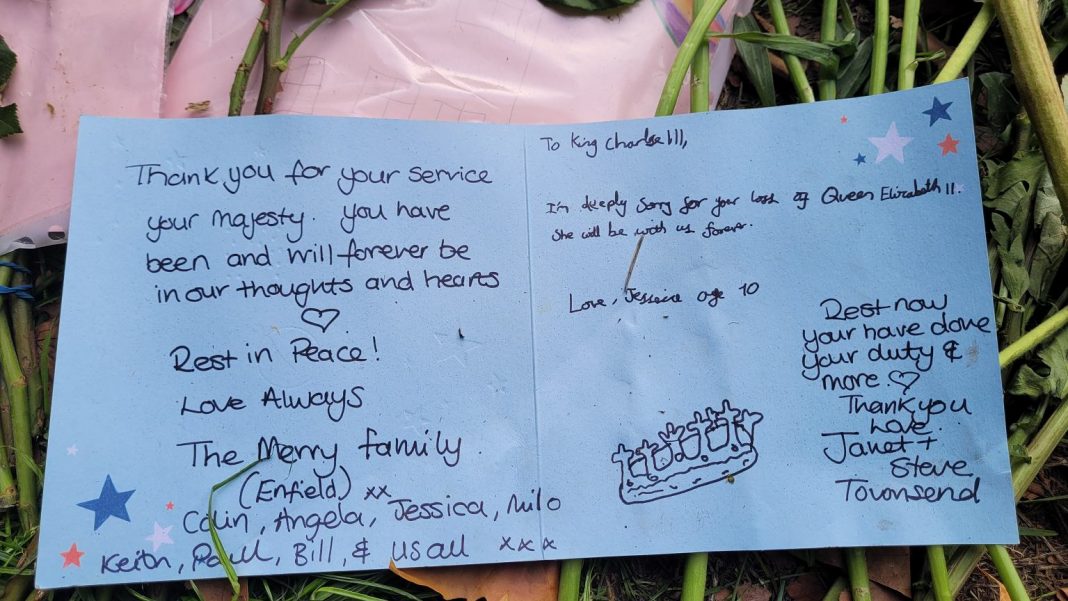 Thank you for your service
your majesty. you have
been and will forever be
in our thoughts and hearts
Rest in Peace!
Love Always
The Merry family
(Enfield) xx
Colin, Angela, Jessica, Milo
Keith, Paul, Bill, & us all xxx
To King Charles III,
I'm deeply sorry for your loss of Queen Elizabeth II.
She will be with us forever.
Love, Jessica age 10
Rest now
your have done
your duty &
more.
Thank you
Love.
Janet +
Steve
Townsend